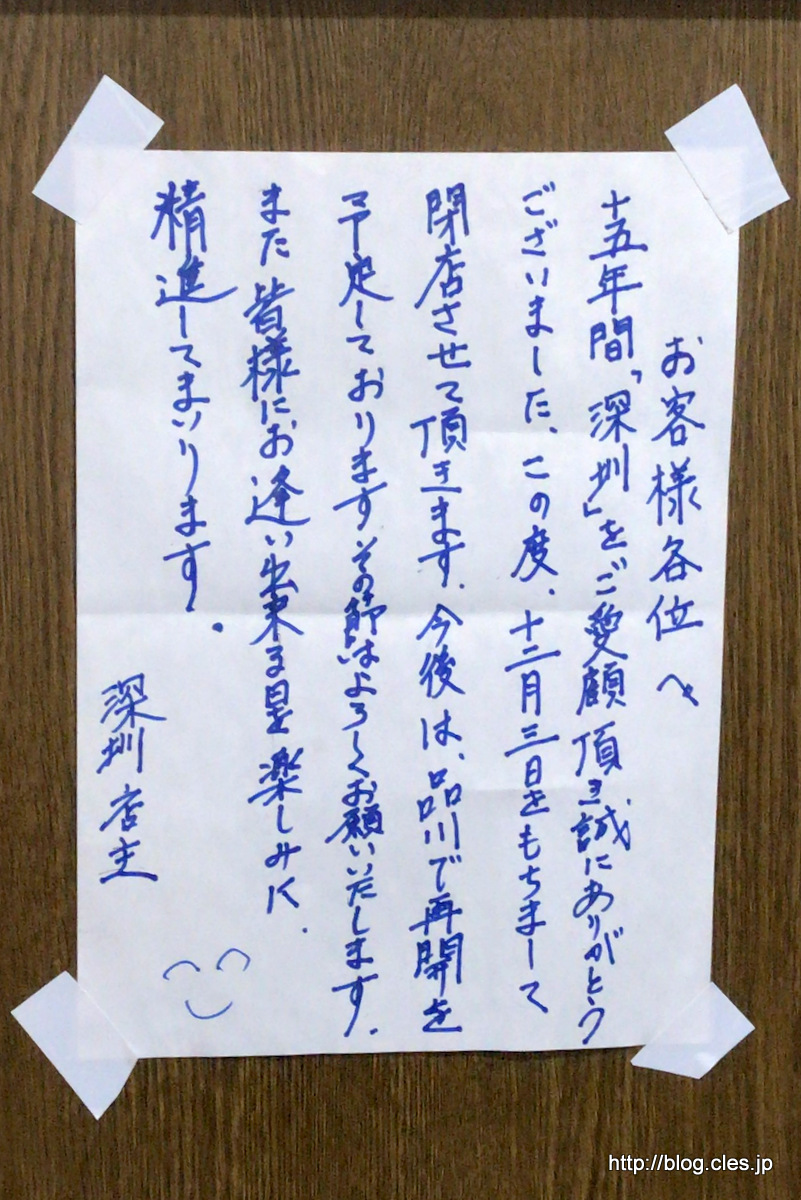 お客様各位へ
十五年間「深圳」をご愛顧頂き誠にありがとう
ございました、この度、十二月三日をもちまして
閉店させて頂きます、今後は、品川で再開を
予定しております、その節はよろしくお願いいたします、
また皆様にお逢い出来る日を楽しみに、
精進してまいります。
深圳店主
http://blog.cles.jp